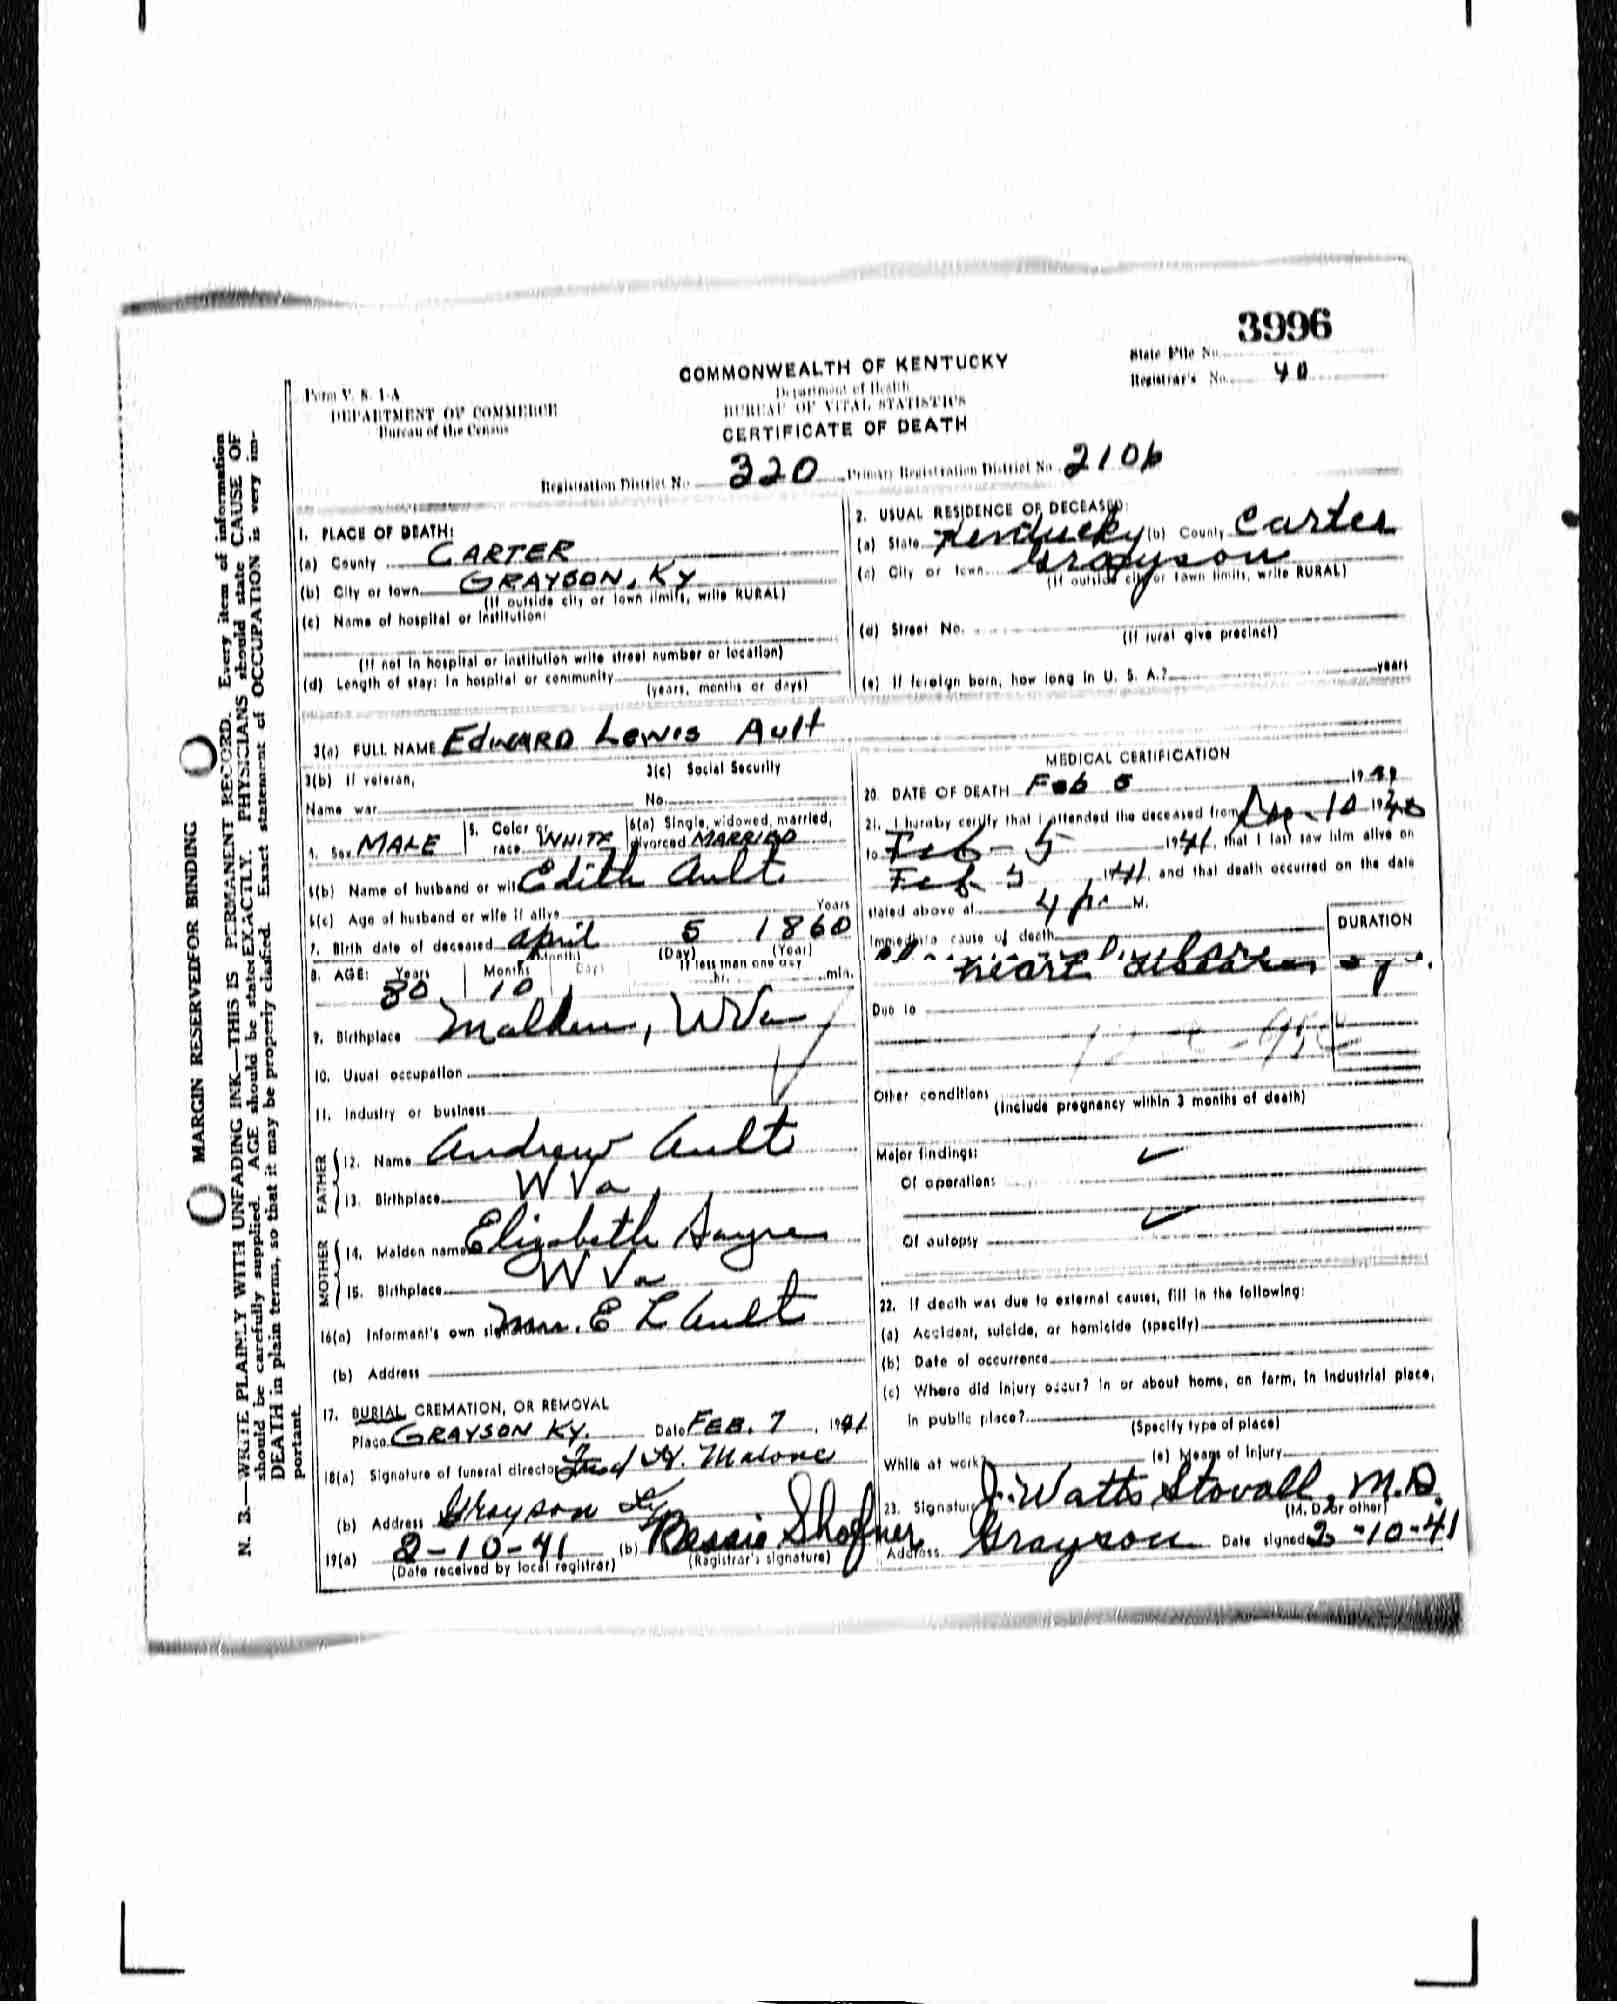 3996
State File No.
Registrar's No. 40
COMMONWEALTH OF KENTUCKY
Form V. S. 1-A
Department of Health
DEPARTMENT OF COMMERCE
BUREAU OF VITAL STATISTICS
Bureau of the Census
CERTIFICATE OF DEATH
Registration District No. 320 Primary Registration District No. 2106
MARGIN RESERVED FOR BINDING
N. B.—WRITE PLAINLY WITH UNFADING INK—THIS IS PERMANENT RECORD. Every item of information
should be carefully supplied. AGE should be stated EXACTLY. PHYSICIANS should state CAUSE OF
DEATH in plain terms, so that it may be properly classified. Exact statement of OCCUPATION is very im-
portant.
1. PLACE OF DEATH:
(a) County CARTER
(b) City or town GRAYSON, KY
(If outside city or town limits, write RURAL)
(c) Name of hospital or institution:
(If not in hospital or institution write street number or location)
(d) Length of stay: In hospital or community
(years, months or days)
2. USUAL RESIDENCE OF DECEASED:
(a) State Kentucky (b) County Carter
(c) City or town Grayson
(If outside city or town limits, write RURAL)
(d) Street No.
(If rural give precinct)
(e) If foreign born, how long in U. S. A.? years
3(a) FULL NAME EDWARD LEWIS AULT
3(b) If veteran,
3(c) Social Security
Name war No.
4. Sex MALE
5. Color or race WHITE
6(a) Single, widowed, married, divorced MARRIED
6(b) Name of husband or wife Edith Ault
6(c) Age of husband or wife if alive Years
7. Birth date of deceased April 5 1860
(Month) (Day) (Year)
8. AGE: Years Months Days If less than one day
80 10 hr. min.
9. Birthplace Malden, WVa
10. Usual occupation
11. Industry or business
FATHER
12. Name Andrew Ault
13. Birthplace W Va
MOTHER
14. Maiden name Elizabeth Sayre
15. Birthplace W Va
16(a) Informant's own signature Mrs. E L Ault
(b) Address
17. BURIAL, CREMATION, OR REMOVAL
Place GRAYSON KY. Date FEB. 7, 1941
18(a) Signature of funeral director Fred H. Malone
(b) Address Grayson Ky
19(a) 2-10-41 (b) Bessie Shofner
(Date received by local registrar) (Registrar's signature)
MEDICAL CERTIFICATION
20. DATE OF DEATH Feb 5 1941
21. I hereby certify that I attended the deceased from 10 1940
to Feb-5 1941, that I last saw him alive on
Feb 5 1941, and that death occurred on the date
stated above at 4 p. M.
Immediate cause of death DURATION
heart disease
Due to
Other conditions
(Include pregnancy within 3 months of death)
Major findings:
Of operations
Of autopsy
22. If death was due to external causes, fill in the following:
(a) Accident, suicide, or homicide (specify)
(b) Date of occurrence
(c) Where did injury occur? In or about home, on farm, in industrial place,
in public place?
(Specify type of place)
While at work? (e) Means of injury
23. Signature J. Watts Stovall, M.D.
(M. D. or other)
Address Grayson Date signed 2-10-41